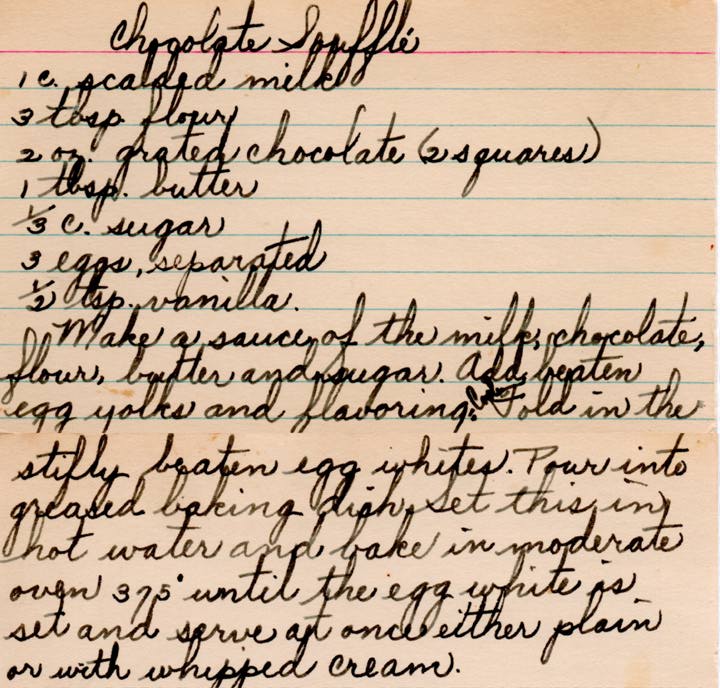 Chocolate Soufflé
1 c. scalded milk
3 tbsp. flour
2 oz. grated chocolate (2 squares)
1 tbsp. butter
1/3 c. sugar
3 eggs, separated
1/2 tsp. vanilla.
Make a sauce of the milk, chocolate,
flour, butter and sugar. Add beaten
egg yolks and flavoring. Cool. Fold in the
stifly beaten egg whites. Pour into
greased baking dish. Set this in
hot water and bake in moderate
oven 375° until the egg white is
set and serve at once either plain
or with whipped cream.